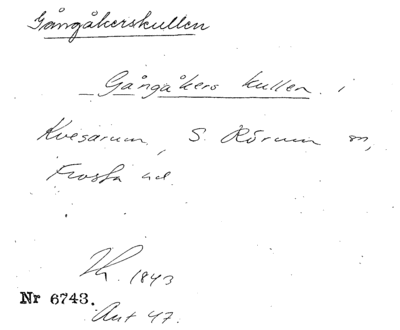 Gångåkerskullen
Gångåkers kullen i
Kvesarum, S. Rörum sn,
Frosta hd.
1843
Nr 6743.
Ant 47.